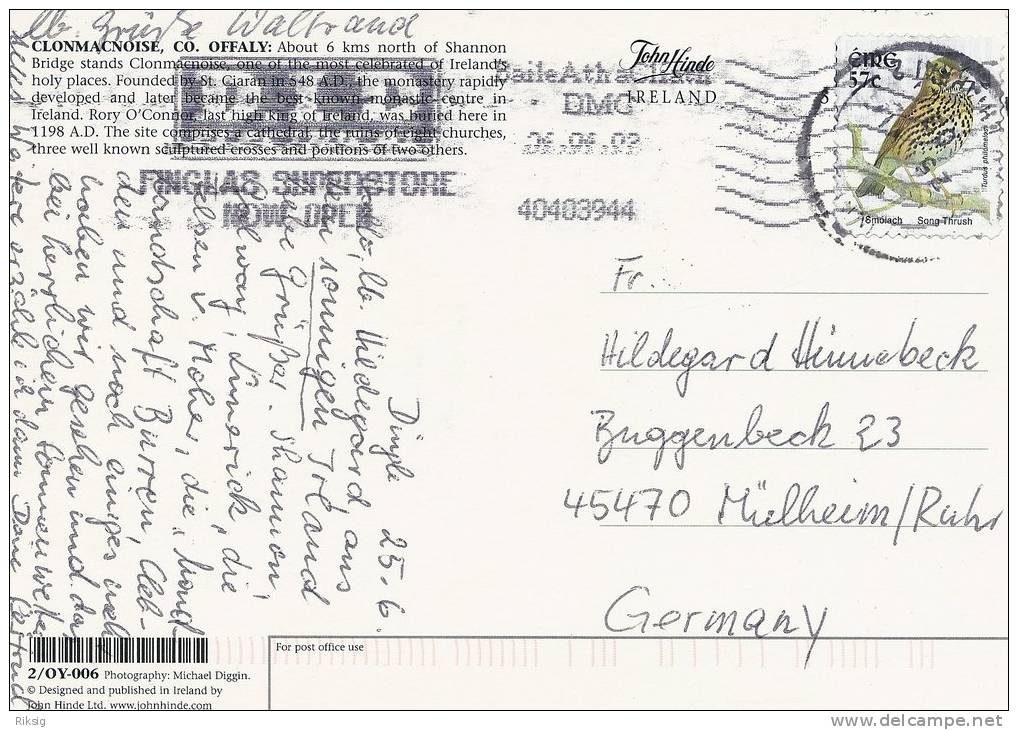 lb. Grüße Waltraud
CLONMACNOISE, CO. OFFALY: About 6 kms north of Shannon
Bridge stands Clonmacnoise, one of the most celebrated of Ireland's
holy places. Founded by St. Ciaran in 548 A.D., the monastery rapidly
developed and later became the best known monastic centre in
Ireland. Rory O'Connor, last high king of Ireland, was buried here in
1198 A.D. The site comprises a cathedral, the ruins of eight churches,
three well known sculptured crosses and portions of two others.
John Hinde
IRELAND
BaileAtha
DMC
40403944
FINGLAS SUPERSTORE
NOW OPEN
éıRe
57c
Smólach Song Thrush
Turdus philomelos
Dingle 25.6.
lb. Hildegard, aus
sonnigen Irland
Grüße. Shannon,
Galway, Limerick, die
Felsen v. Moher, die "Mond-
landschaft" Burren
den und noch einiges mehr
haben wir gesehen und das
bei herrlichem Sonnenwetter
erzähle ich dann
Fr.
Hildegard Hinnebeck
Buggenbeck 23
45470 Mülheim/Ruhr
Germany
For post office use
2/OY-006 Photography: Michael Diggin.
© Designed and published in Ireland by
John Hinde Ltd. www.johnhinde.com
Riksig
delcampe.net